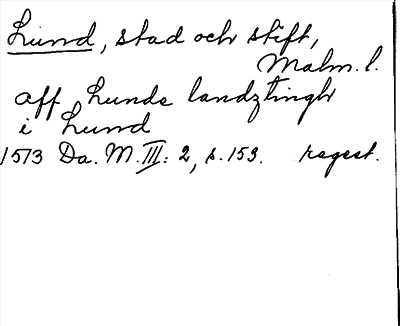 Lund, stad och stift,
Malm. l.
aff Lunds landztingh
i Lund
1573 Da. M. III: 2, s. 153. regest.